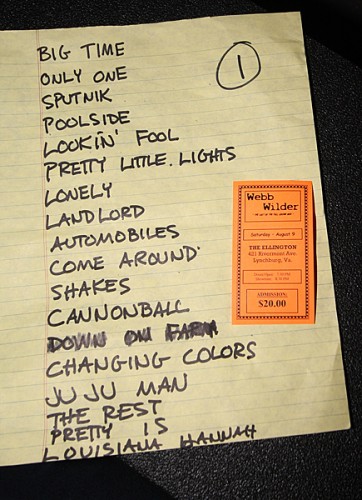 BIG TIME
1
ONLY ONE
SPUTNIK
POOLSIDE
LOOKIN' FOOL
PRETTY LITTLE. LIGHTS
LONELY
LANDLORD
AUTOMOBILES
COME AROUND
SHAKES
CANNONBALL
DOWN ON FARM
CHANGING COLORS
JUJU MAN
THE REST
PRETTY IS
LOUISIANA HANNAH
Webb
Wilder
Saturday - August 9
THE ELLINGTON
421 Rivermont Ave.
Lynchburg, Va.
ADMISSION:
$20.00